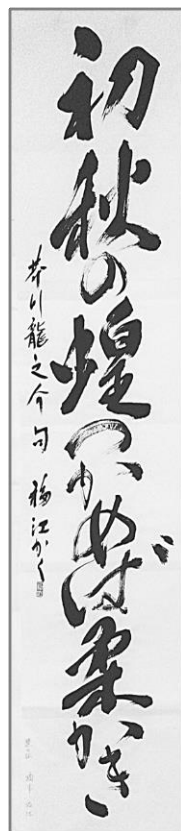 初秋の蝗つかめば柔かき
芥川龍之介句 福江かく